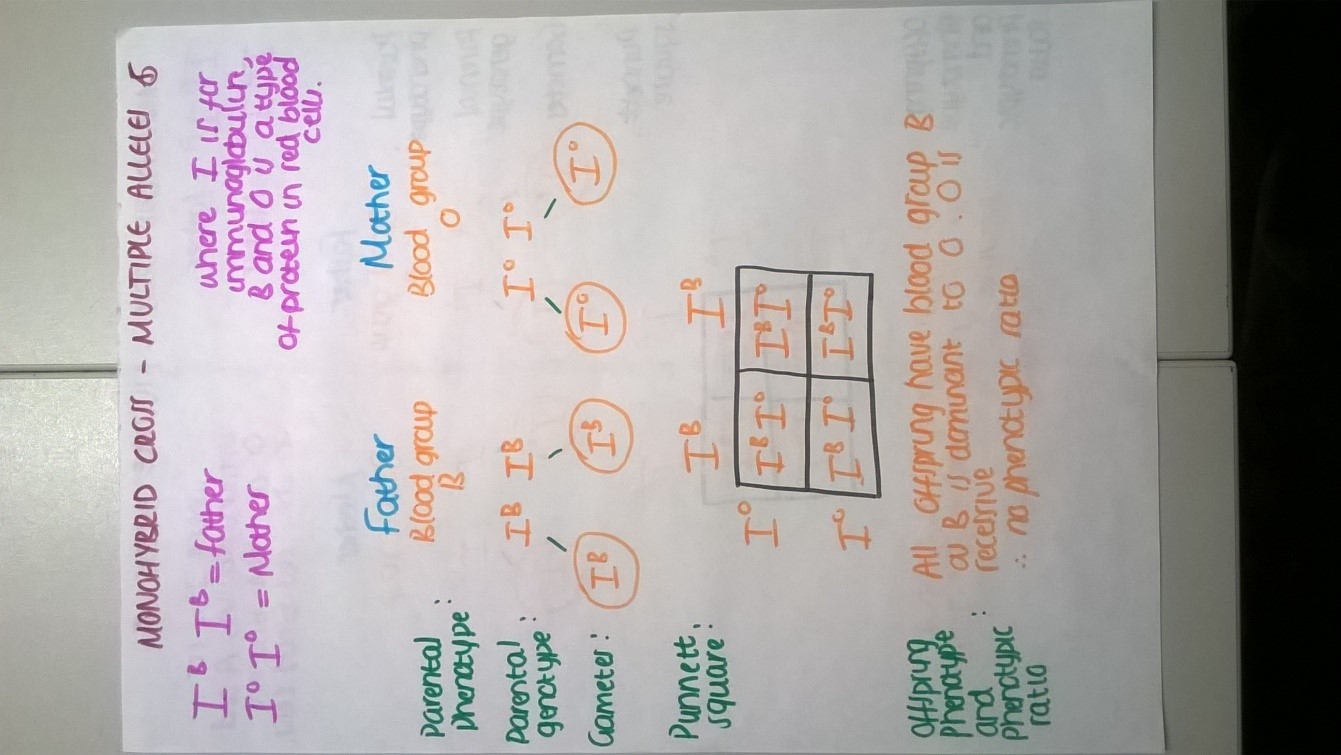 MONOHYBRID CROSS - MULTIPLE ALLELES
I^B I^B = father
I^o I^o = Mother
where I is for
immunoglobulin,
B and O is a type
of protein in red blood
cells.
Father
Mother
Parental
phenotype:
Blood group
B
Blood group
O
Parental
genotype:
I^B I^B
I^o I^o
Gametes:
I^B
I^B
I^o
I^o
Punnett
square:
I^B I^B
I^o
I^B I^o
I^B I^o
I^o
I^B I^o
I^B I^o
Offspring
phenotype
and
phenotypic
ratio
:
All offspring have blood group B
as B is dominant to O. O is
recessive
∴ no phenotypic ratio